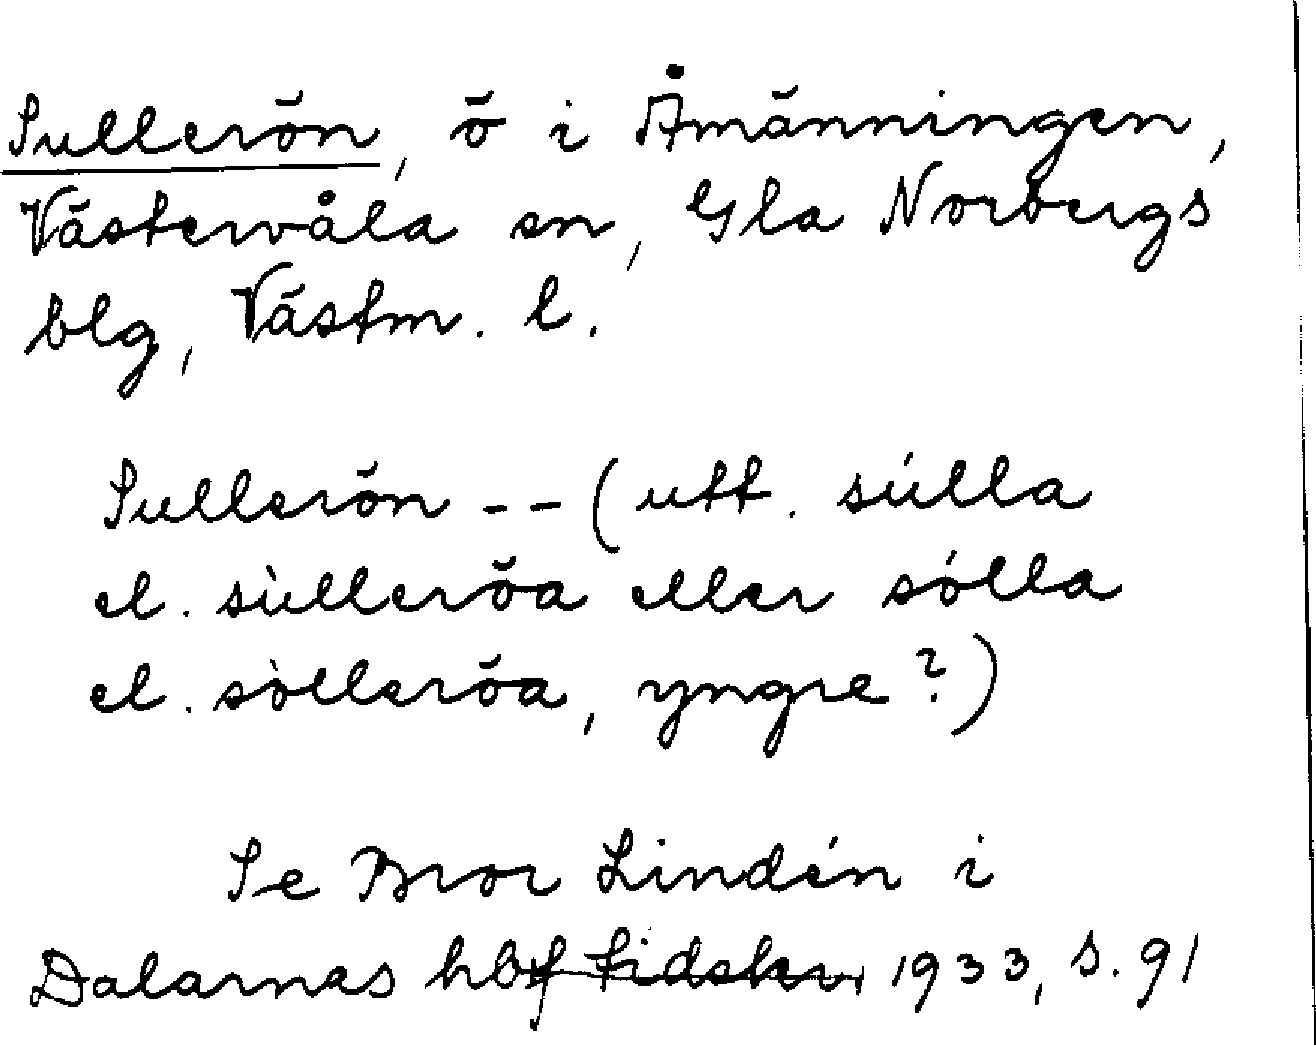 Sullerön, ö i Åmänningen,
Västervåla sn, Gla Norbergs
blg, Västm. l.
Sullerön -- (utt. súlla
el. sùlleröa eller sólla
el. sòlleröa, yngre?)
Se Bror Lindén i
Dalarnas hbf tidskr, 1933, s. 91